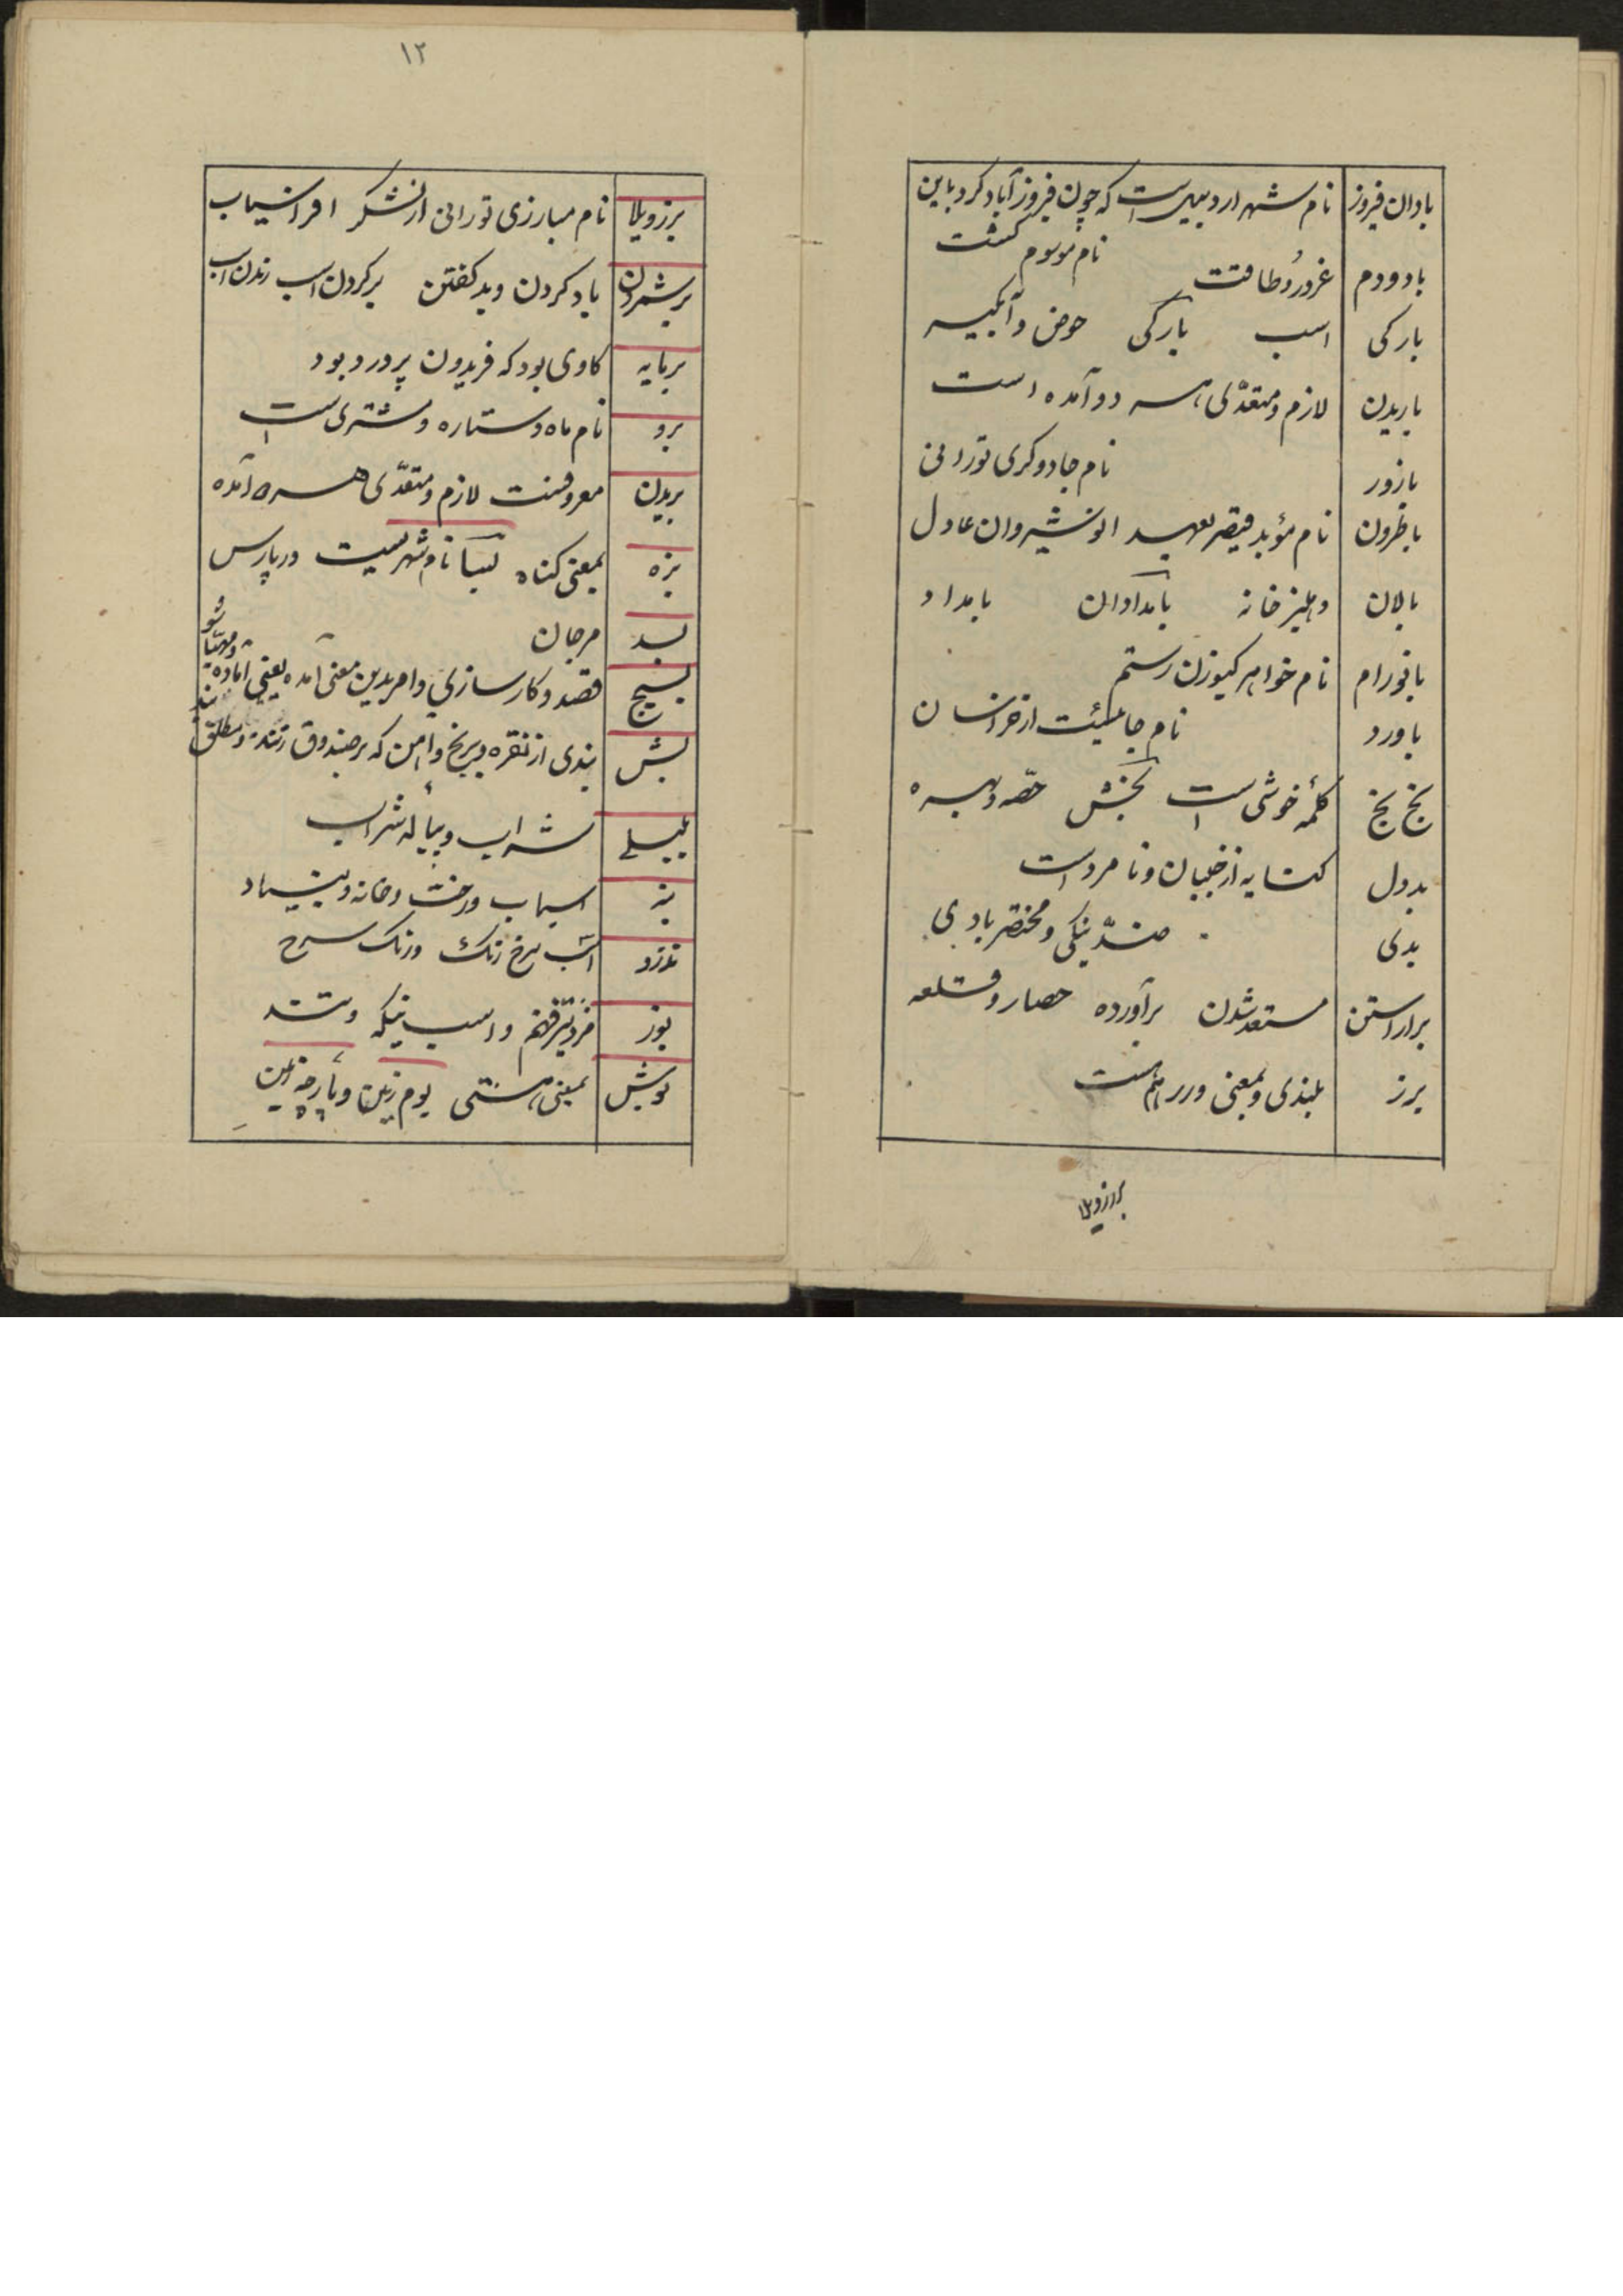 بادان فیروز نام شهر اردبیل است که چون فیروز آباد کرد باین
نام موسوم کشت
باد ودم غرور و طاقت
بارکی اسب بارکی حوض و آبکیر
باریدن لازم و متعدّی هر دو آمده است
بازور نام جادوکری تورانی
باطرون نام مؤبد قیصر بعهد انوشیروان عادل
بالان دهلیز خانه بامدادان بامداد
بانورام نام خواهر کیو زن رستم
باورد نام جائیست از خراسان
بخ بخ کلمهٔ خوشی است بخش حصّه و بهره
بددل کنایه از جبان و نامرد است
بدی ضدّ نیکی و مختصر بادی
براراستن مستعد شدن برآورده حصار و قلعه
برز بلندی و بمعنی ورر هم است
برزویلا
۱۲
برزویلا نام مبارزی تورانی از لشکر افراسیاب
برشمردن یاد کردن و بد کفتن بر کردن اسب راندن اسب
برمایه کاوی بود که فریدون پرورد بود
برو نام ماه و ستاره و مشتری است
بریدن معروفست لازم و متعدّی هر دو آمده
بزه بمعنی کناه بسا نام شهریست در پارس
بسد مرجان
بسیج قصد و کارسازی و امر بدین معنی آمده یعنی آماده و مهیّا شو
بش بندی از نقره و برنج و آهن که بر صندوق زنند و مطلق بند
بلبلی شراب و پیاله شراب
بنه اسباب و رخت و خانه و بنیاد
اسب سرخ رنک و رنک سرخ
بور مرد تیز فهم و اسب نیکه و تند
بوش بمعنی هستی بوم زمین و پارچه زمین